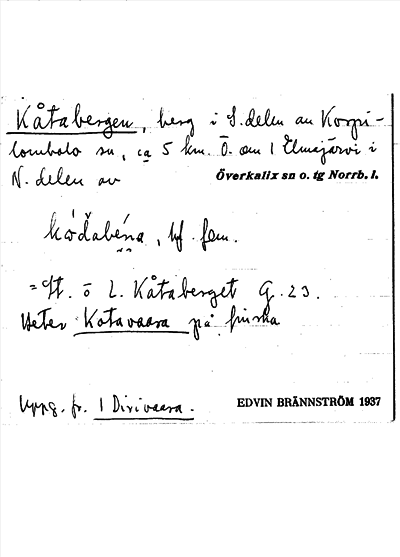 Kåtabergen, berg i S. delen av Korpi-
lombolo sn, ca 5 km. Ö. om 1 Elmajärvi i
N. delen av Överkalix sn o. tg Norrb. l.
bf. fem.
= St. o L. Kåtaberget G. 23.
Heter Kotavaara på finska
Uppg. fr. 1 Dirivaara.
EDVIN BRÄNNSTRÖM 1937